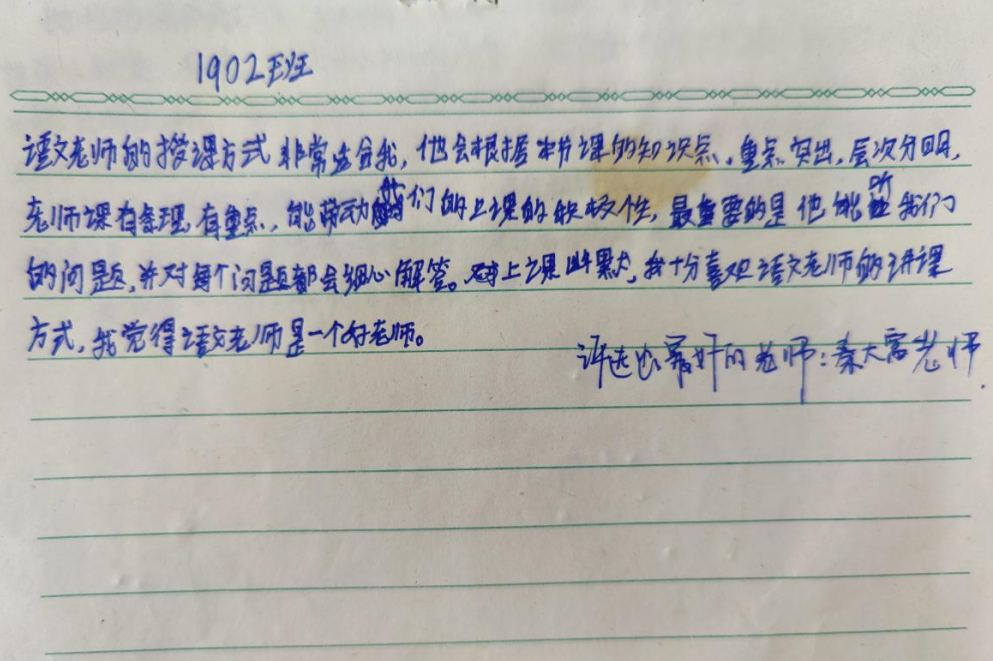 1902班
语文老师的授课方式非常适合我,他会根据本节课的知识点,重点突出,层次分明,
老师课有条理,有重点,能带动我们的上课的积极性,最重要的是他能听我们
的问题,并对每个问题都会细心解答。上课幽默,我十分喜欢语文老师的讲课
方式,我觉得语文老师是一个好老师。
评选出最好的老师:秦大富老师.